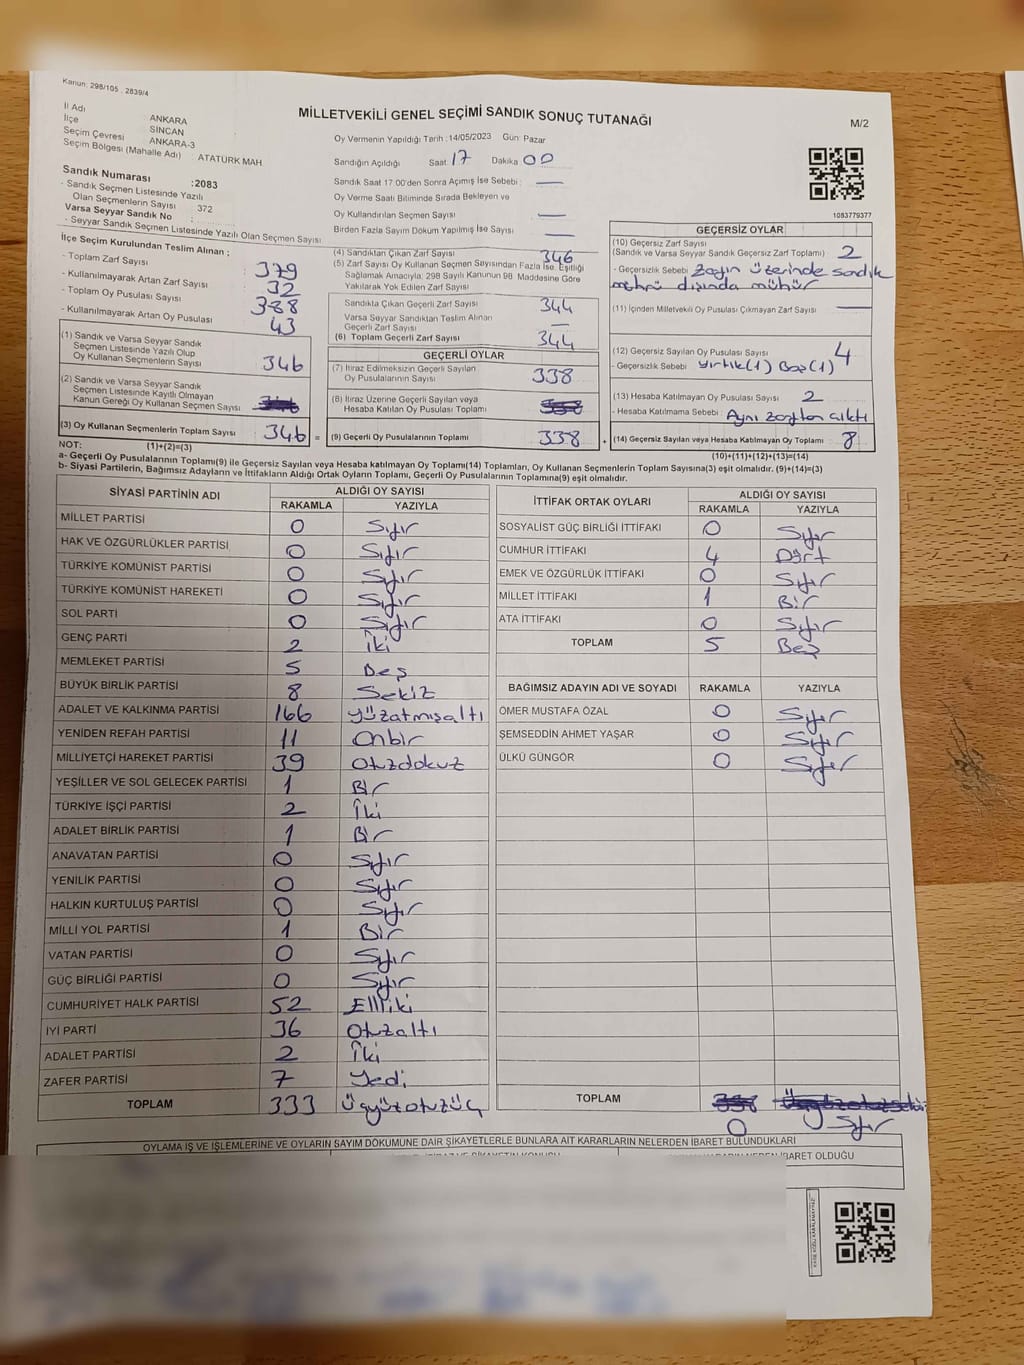 Kanun: 298/105 , 2839/4
MİLLETVEKİLİ GENEL SEÇİMİ SANDIK SONUÇ TUTANAĞI
M/2
İl Adı ANKARA
İlçe SİNCAN
Seçim Çevresi ANKARA-3
Seçim Bölgesi (Mahalle Adı) ATATÜRK MAH.
Sandık Numarası :2083
- Sandık Seçmen Listesinde Yazılı
Olan Seçmenlerin Sayısı : 372
Varsa Seyyar Sandık No :
- Seyyar Sandık Seçmen Listesinde Yazılı Olan Seçmen Sayısı
Oy Vermenin Yapıldığı Tarih :14/05/2023 Gün: Pazar
Sandığın Açıldığı Saat 17 Dakika 00
Sandık Saat 17:00'den Sonra Açımış İse Sebebi : —
Oy Verme Saati Bitiminde Sırada Bekleyen ve
Oy Kullandırılan Seçmen Sayısı —
Birden Fazla Sayım Döküm Yapılmış İse Sayısı —
1083779377
İlçe Seçim Kurulundan Teslim Alınan ;
- Toplam Zarf Sayısı : 379
- Kullanılmayarak Artan Zarf Sayısı : 32
- Toplam Oy Pusulası Sayısı : 388
- Kullanılmayarak Artan Oy Pusulası : 43
(1) Sandık ve Varsa Seyyar Sandık
Seçmen Listesinde Yazılı Olup
Oy Kullanan Seçmenlerin Sayısı 346
(2) Sandık ve Varsa Seyyar Sandık
Seçmen Listesinde Kayıtlı Olmayan
Kanun Gereği Oy Kullanan Seçmen Sayısı
(3) Oy Kullanan Seçmenlerin Toplam Sayısı 346 =
(4) Sandıktan Çıkan Zarf Sayısı 346
(5) Zarf Sayısı Oy Kullanan Seçmen Sayısından Fazla İse, Eşitliği
Sağlamak Amacıyla, 298 Sayılı Kanunun 98. Maddesine Göre
Yakılarak Yok Edilen Zarf Sayısı
Sandıkta Çıkan Geçerli Zarf Sayısı 344
Varsa Seyyar Sandıktan Teslim Alınan
Geçerli Zarf Sayısı —
(6) Toplam Geçerli Zarf Sayısı 344
GEÇERLİ OYLAR
(7) İtiraz Edilmeksizin Geçerli Sayılan
Oy Pusulalarının Sayısı 338
(8) İtiraz Üzerine Geçerli Sayılan veya
Hesaba Katılan Oy Pusulası Toplamı
(9) Geçerli Oy Pusulalarının Toplamı 338 +
GEÇERSİZ OYLAR
(10) Geçersiz Zarf Sayısı
(Sandık ve Varsa Seyyar Sandık Geçersiz Zarf Toplamı) : 2
- Geçersizlik Sebebi : Zarfın üzerinde sandık
mührü dışında mühür
(11) İçinden Milletvekili Oy Pusulası Çıkmayan Zarf Sayısı —
(12) Geçersiz Sayılan Oy Pusulası Sayısı : 4
- Geçersizlik Sebebi : Yırtık(1) Boş(1)
(13) Hesaba Katılmayan Oy Pusulası Sayısı : 2
- Hesaba Katılmama Sebebi : Aynı zarftan çıktı
(14) Geçersiz Sayılan veya Hesaba Katılmayan Oy Toplamı 8
NOT: (1)+(2)=(3)
(10)+(11)+(12)+(13)=(14)
a- Geçerli Oy Pusulalarının Toplamı(9) ile Geçersiz Sayılan veya Hesaba katılmayan Oy Toplamı(14) Toplamları, Oy Kullanan Seçmenlerin Toplam Sayısına(3) eşit olmalıdır. (9)+(14)=(3)
b- Siyasi Partilerin, Bağımsız Adayların ve İttifakların Aldığı Ortak Oyların Toplamı, Geçerli Oy Pusulalarının Toplamına(9) eşit olmalıdır.
SİYASİ PARTİNİN ADI ALDIĞI OY SAYISI
RAKAMLA YAZIYLA
MİLLET PARTİSİ 0 Sıfır
HAK VE ÖZGÜRLÜKLER PARTİSİ 0 Sıfır
TÜRKİYE KOMÜNİST PARTİSİ 0 Sıfır
TÜRKİYE KOMÜNİST HAREKETİ 0 Sıfır
SOL PARTİ 0 Sıfır
GENÇ PARTİ 2 İki
MEMLEKET PARTİSİ 5 Beş
BÜYÜK BİRLİK PARTİSİ 8 Sekiz
ADALET VE KALKINMA PARTİSİ 166 Yüzatmışaltı
YENİDEN REFAH PARTİSİ 11 Onbir
MİLLİYETÇİ HAREKET PARTİSİ 39 Otuzdokuz
YEŞİLLER VE SOL GELECEK PARTİSİ 1 Bir
TÜRKİYE İŞÇİ PARTİSİ 2 İki
ADALET BİRLİK PARTİSİ 1 Bir
ANAVATAN PARTİSİ 0 Sıfır
YENİLİK PARTİSİ 0 Sıfır
HALKIN KURTULUŞ PARTİSİ 0 Sıfır
MİLLİ YOL PARTİSİ 1 Bir
VATAN PARTİSİ 0 Sıfır
GÜÇ BİRLİĞİ PARTİSİ 0 Sıfır
CUMHURİYET HALK PARTİSİ 52 Elliiki
İYİ PARTİ 36 Otuzaltı
ADALET PARTİSİ 2 İki
ZAFER PARTİSİ 7 Yedi
TOPLAM 333 Üçyüzotuzüç
İTTİFAK ORTAK OYLARI ALDIĞI OY SAYISI
RAKAMLA YAZIYLA
SOSYALİST GÜÇ BİRLİĞİ İTTİFAKI 0 Sıfır
CUMHUR İTTİFAKI 4 Dört
EMEK VE ÖZGÜRLÜK İTTİFAKI 0 Sıfır
MİLLET İTTİFAKI 1 Bir
ATA İTTİFAKI 0 Sıfır
TOPLAM 5 Beş
BAĞIMSIZ ADAYIN ADI VE SOYADI RAKAMLA YAZIYLA
ÖMER MUSTAFA ÖZAL 0 Sıfır
ŞEMSEDDİN AHMET YAŞAR 0 Sıfır
ÜLKÜ GÜNGÖR 0 Sıfır
TOPLAM 338 Üçyüzotuzsekiz
0 Sıfır
OYLAMA İŞ VE İŞLEMLERİNE VE OYLARIN SAYIM DÖKÜMÜNE DAİR ŞİKAYETLERLE BUNLARA AİT KARARLARIN NELERDEN İBARET BULUNDUKLARI
İBARET OLDUĞU